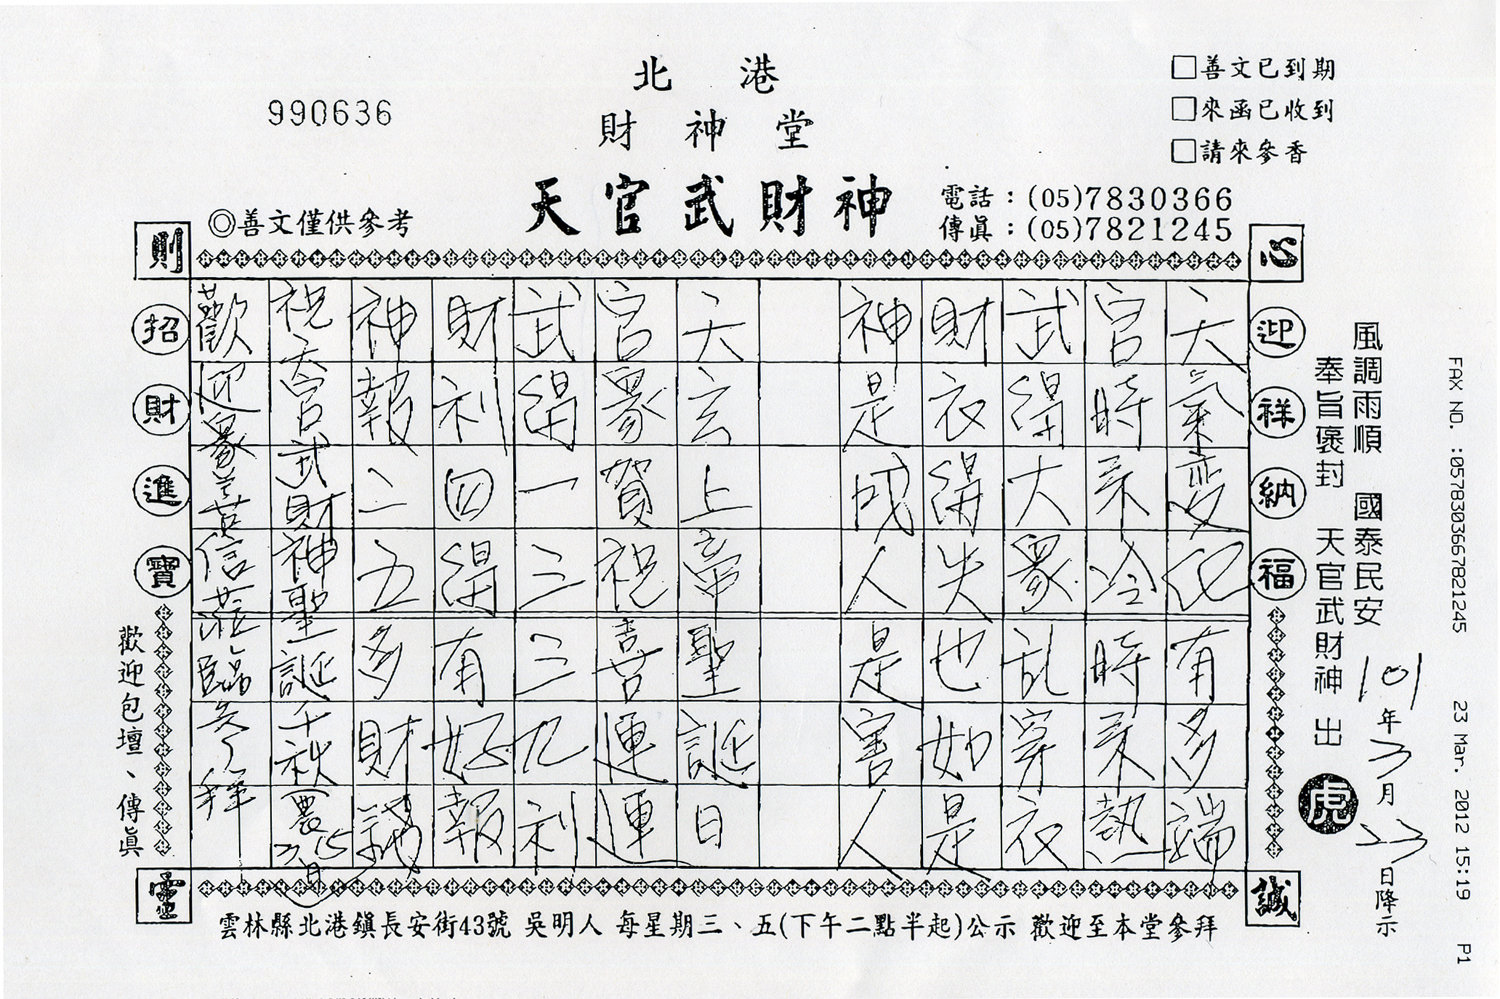 北港
財神堂
天官武財神
990636
□善文已到期
□來函已收到
□請來參香
電話：(05)7830366
傳真：(05)7821245
◎善文僅供參考
心
誠
則
靈
迎祥納福
招財進寶
風調雨順 國泰民安
奉旨褒封 天官武財神 出
虎
101年3月23日降示
天氣變化有多端
官時來冷時來熱
武得大眾亂穿衣
財衣得失也如是
神是成人是害人
天玄上帝聖誕日
官眾賀祝喜連連
武得一三三九利
財利四得有好報
神報二五多財
祝天官武財神聖誕千秋農3月15日
歡迎眾善信蒞臨參拜
歡迎包壇、傳真
雲林縣北港鎮長安街43號 吳明人 每星期三、五(下午二點半起)公示 歡迎至本堂參拜
FAX NO. :0578303667821245 23 Mar. 2012 15:19 P1